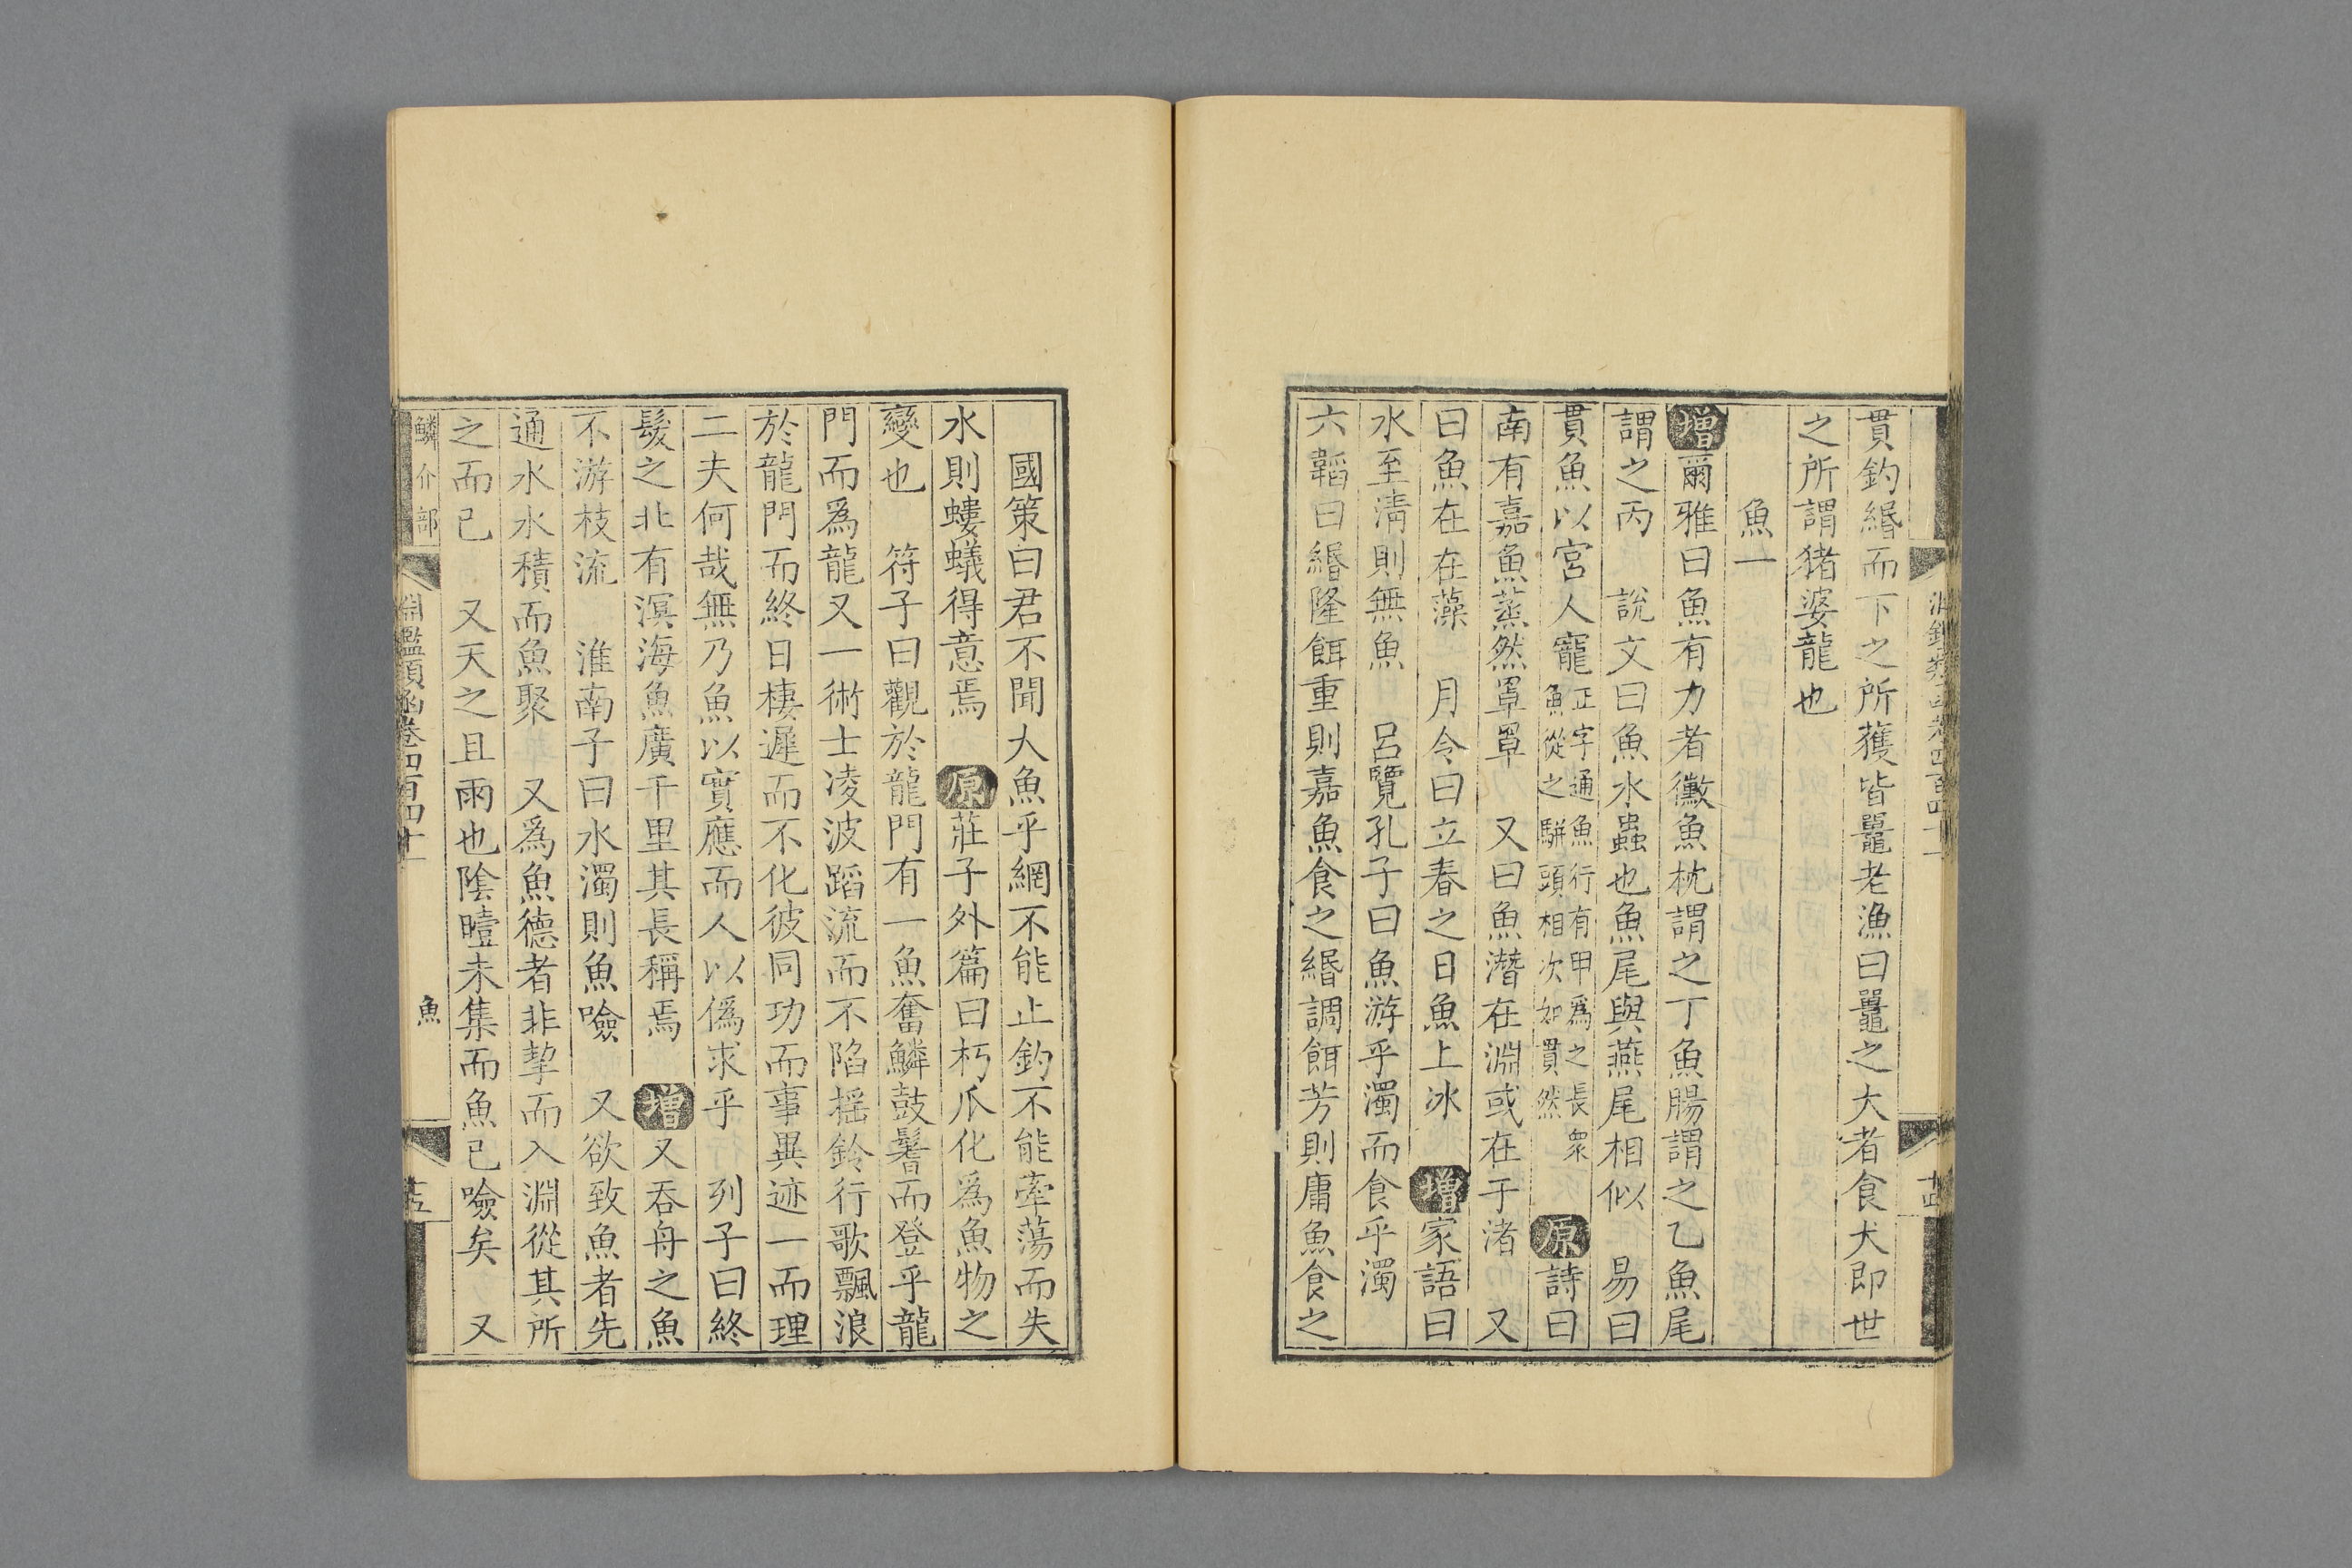 貫釣緡而下之所獲皆鼉老漁曰鼉之大者食犬即世
之所謂猪婆龍也
魚一
增爾雅曰魚有力者黴魚枕謂之丁魚腸謂之乙魚尾
謂之丙 說文曰魚水蟲也魚尾與燕尾相似 易曰
貫魚以宮人寵正字通魚行有甲為之長衆魚從之駢頭相次如貫然 原詩曰
南有嘉魚蒸然罩罩 又曰魚潛在淵或在于渚 又
曰魚在在藻 月令曰立春之日魚上冰 增家語曰
水至清則無魚 呂覽孔子曰魚游乎濁而食乎濁
六韜曰緡隆餌重則嘉魚食之緡調餌芳則庸魚食之
十四
國策曰君不聞大魚乎網不能止釣不能牽蕩而失
水則螻蟻得意焉 原莊子外篇曰朽爪化爲魚物之
變也 符子曰觀於龍門有一魚奮鱗鼓鬐而登乎龍
門而爲龍又一術士凌波蹈流而不陷摇鈴行歌飄浪
於龍門而終日棲遲而不化彼同功而事異迹一而理
二夫何哉無乃魚以實應而人以僞求乎 列子曰終
髮之北有溟海魚廣千里其長稱焉 增又吞舟之魚
不游枝流 淮南子曰水濁則魚噞 又欲致魚者先
通水水積而魚聚 又爲魚德者非挈而入淵從其所
之而已 又天之且雨也陰曀未集而魚已噞矣 又
鱗介部 淵鑑類函卷四百四十一 魚 十五